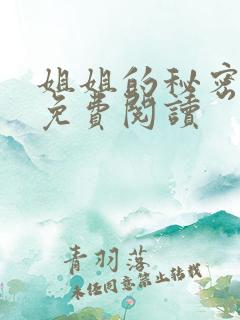 姐姐的秘密
免費閱讀
青羽落
未经同意禁止转载